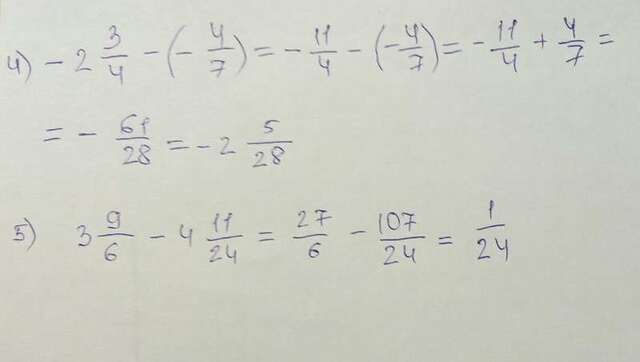 4) - 2 3/4 - (- 4/7) = - 11/4 - (- 4/7) = - 11/4 + 4/7 =
= - 61/28 = - 2 5/28
5) 3 9/6 - 4 11/24 = 27/6 - 107/24 = 1/24